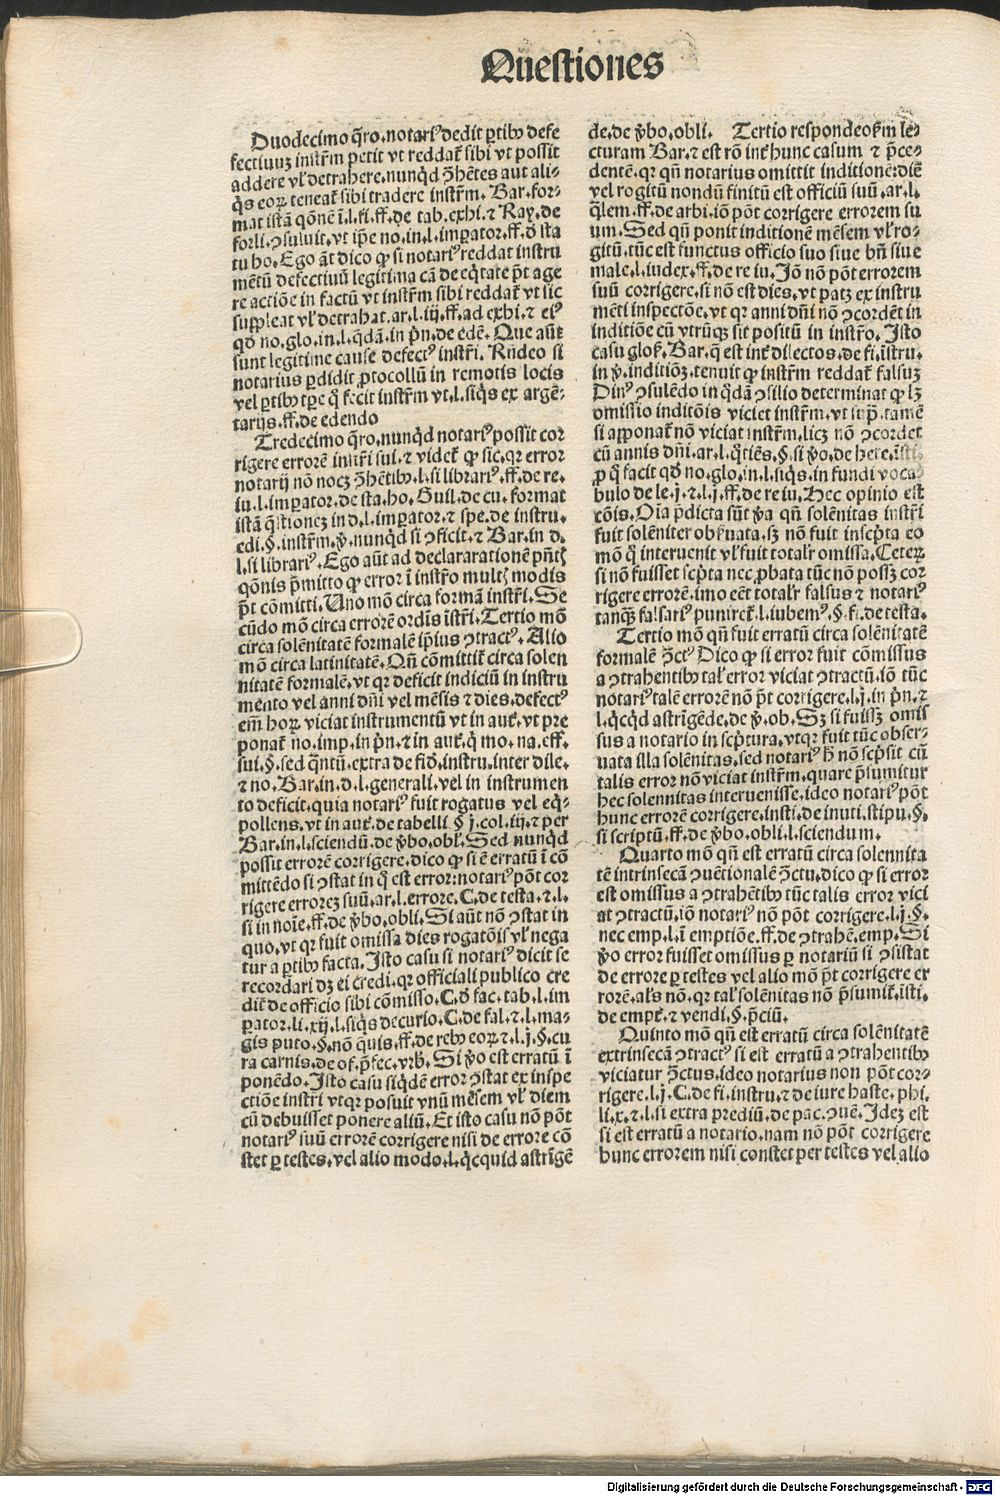 Questiones
Duodecimo q̄ro.notariꝰ dedit ꝑtibꝫ defe
fectiuuꝫ instr̄m petit vt reddat̄ sibi vt possit
addere vl̓ detrahere.nunqd̓ ꝯhētes aut ali⸗
q̓s eoꝝ teneat̄ sibi tradere instr̄m. Bar. for⸗
mat istā qōnē ī.l.fi.ff.de tab.exhi.⁊ Ray.de
forli.ꝯsuluit.vt ip̄e no.in.l.imꝑator.ff.d̓ sta
tu ho. Ego āt dico ꝙ si notariꝰ reddat instru
mētū defectiuū legitima cā de eq̓tate p̄t age
re actiōe in factū vt instr̄m sibi reddat̄ vt sic
suppleat vl̓ detrahat.ar.l.iij.ff.ad exhi.⁊ eiꝰ
qd̓ no.glo.in.l.q̄dā.in pn̄.de edē. Que aūt
sunt legitime cause defectꝰ instr̄i. Rn̄deo si
notarius ꝑdidit ꝓtocollū in remotis locis
vel ꝑtibꝫ tꝑe q̓ fecit instr̄m vt.l.siq̓s ex argē⸗
tarijs.ff.de edendo
Tredecimo q̄ro.nunqd̓ notariꝰ possit cor
rigere errorē instr̄i sui.⁊ videt̄ ꝙ sic.qꝛ error
notarij nō nocꝫ ꝯhētibꝫ.l.si librariꝰ.ff.de re.
iu.l.imꝑator.de sta.ho. Guil.de cu. format
istā q̄stioneꝫ in d.l.imꝑator.⁊ spe.de instru.
edi.§.instr̄m.v̓.nunqd̓ si ꝯficit.⁊ Bar.in d.
l.si librariꝰ. Ego aūt ad declararationē pn̄tꝭ
qōnis p̄mitto ꝙ error ī instr̄o multꝭ modis
p̄t cōmitti. Uno mō circa formā instr̄i. Se
cūdo mō circa errorē ordīs īstr̄i. Tertio mō
circa solēnitatē formalē ip̄ius ꝯtractꝰ. Alio
mō circa latinitatē. Qn̄ cōmittit̄ circa solen
nitatē formalē.vt qꝛ deficit indiciū in instru
mento vel anni dn̄i vel mēsis ⁊ dies.defectꝰ
em̄ hoꝝ viciat instrumentū vt in aut̄.vt pre
ponat̄ no.imp.in pn̄.⁊ in aut̄.q̓ mo.na.eff.
sui.§.sed q̄ntū.extra de fid̓.instru.inter dile.
⁊ no. Bar.in.d.l.generali.vel in instrumen
to deficit.quia notariꝰ fuit rogatus vel eq̓⸗
pollens.vt in aut̄.de tabelli §.j.col.iij.⁊ per
Bar.in.l.sciendū.de v̓bo.obl. Sed nunqd̓
possit errorē corrigere.dico ꝙ si ē erratū ī cō
mittēdo si ꝯstat in q̓ est error:notariꝰ pōt cor
rigere erroreꝫ suū.ar.l.errore. C.de testa.⁊.l.
si in noīe.ff.de v̓bo.obli. Si aūt nō ꝯstat in
quo.vt qꝛ fuit omissa dies rogatōis vl̓ nega
tur a ꝑtibꝫ facta. Isto casu si notariꝰ dicit se
recordari dꝫ ei credi.qꝛ officiali publico cre
dit̄ de officio sibi cōmisso. C.d̓ fac.tab.l.im
ꝑator.li.xij.l.siq̓s decurio. C.de fal.⁊ l.ma⸗
gis puto.§.nō q̄uis.ff.de rebꝫ eoꝝ.⁊.l.j.§.cu
ra carnis.de of.p̄fec.vrb̓. Si v̓o est erratū ī
ponēdo. Isto casu siqd̓ē error ꝯstat ex inspe
ctiōe instr̄i vtqꝛ posuit vnū mēsem vl̓ diem
cū debuisset ponere aliū. Et isto casu nō pōt
notariꝰ suū errorē corrigere nisi de errore cō
stet ꝑ testes.vel alio modo.l.q̓cquid astrīgē
de.de v̓bo.obli. Tertio respondeo sm̄ le⸗
cturam Bar.⁊ est rō int̓ hunc casum ⁊ p̄ce⸗
dentē.qꝛ qn̄ notarius omittit inditionē:diē
vel rogitū nondū finitū est officiū suū.ar.l.
q̄lem.ff.de arbi.iō pōt corrigere errorem su
um. Sed qn̄ ponit inditionē mēsem vl̓ ro⸗
gitū.tūc est functus officio suo siue bn̄ siue
male.l.iudex.ff.de re iu. Iō nō pōt errorem
suū corrigere.si nō est dies.vt patꝫ ex instru
mēti inspectōe.vt qꝛ anni dn̄i nō ꝯcordēt in
inditiōe cū vtrūqꝫ sit positū in instr̄o. Isto
casu glos. Bar.q̄ est int̓ dilectos.de fi.īstru.
in v̓.inditiōꝫ.tenuit ꝙ instr̄m reddat̄ falsuꝫ
Dinꝰ ꝯsulēdo in q̄dā ꝯsilio determinat ꝙ lꝫ
omissio inditōis viciet instr̄m.vt supͣ.tamē
si apponat̄ nō viciat instr̄m.licꝫ nō ꝯcordet
cū annis dn̄i.ar.l.q̓tiēs.§.si v̓o.de here.īsti.
ꝓ q̓ facit qd̓ no.glo.in.l.siq̓s.in fundi voca⸗
bulo de le.j.⁊.l.j.ff.de re iu. Hec opinio est
cōis. Oīa p̄dicta sūt v̓a qn̄ solēnitas instr̄i
fuit solēniter obẜuata.sꝫ nō fuit inscp̄ta eo
mō q̓ interuenit vl̓ fuit totalr̄ omissa. Ceteꝝ
si nō fuisset scp̄ta nec ꝓbata tūc nō possꝫ cor
rigere errorē.imo eēt totalr̄ falsus ⁊ notariꝰ
tanqꝫ falsariꝰ puniret̄.l.iubemꝰ.§.fi.de testa.
Tertio mō qn̄ fuit erratū circa solēnitatē
formalē ꝯctꝰ Dico ꝙ si error fuit cōmissus
a ꝯtrahentibꝫ tal̓ error viciat ꝯtractū.iō tūc
notariꝰ talē errorē nō p̄t corrigere.l.j.in pn̄.⁊
l.q̓cqd̓ astrīgēde.de v̓.ob. Sꝫ si fuissꝫ omis
sus a notario in scp̄tura.vtqꝛ fuit tūc obser⸗
uata illa solēnitas.sed notariꝰ h̓ nō scp̄sit cū
talis error nō viciat instr̄m.quare p̄sumitur
hec solennitas interuenisse.ideo notariꝰ pōt
hunc errorē corrigere.insti.de inuti.stipu.§.
si scriptū.ff.de v̓bo.obli.l.sciendum.
Quarto mō qn̄ est erratū circa solennita
tē intrinsecā ꝯuētionalē ꝯctu.dico ꝙ si error
est omissus a ꝯtrahētibꝫ tūc talis error vici
at ꝯtractū.iō notariꝰ nō pōt corrigere.l.j.§.
nec emp.l.ī emptiōe.ff.de ꝯtrahē.emp. Si
v̓o error fuisset omissus ꝑ notariū si ꝯsistat
de errore ꝑ testes vel alio mō p̄t corrigere er
rorē.al̓s nō.qꝛ tal̓ solēnitas nō p̄sumit̄.īsti.
de empt̄.⁊ vendi.§.p̄ciū.
Quinto mō qn̄ est erratū circa solēnitatē
extrinsecā ꝯtractꝰ si est erratū a ꝯtrahentibꝫ
viciatur ꝯctus.ideo notarius non pōt cor⸗
rigere.l.j. C.de fi.instru.⁊ de iure haste.phi.
li.x.⁊.l.si extra prediū.de pac.ꝯuē. Ideꝫ est
si est erratū a notario.nam nō pōt corrigere
hunc errorem nisi constet per testes vel alio
Digitalisierung gefördert durch die Deutsche Forschungsgemeinschaft - DFG